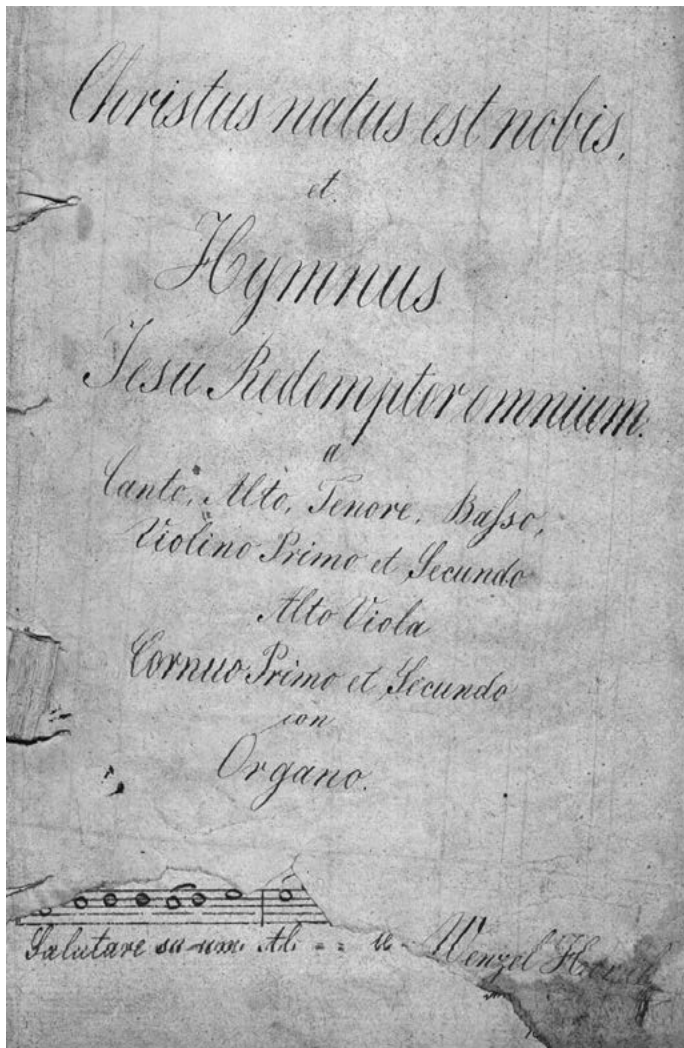 Christus natus est nobis,
et
Hymnus
Jesu Redemptor omnium.
a
Canto, Alto, Tenore, Basso,
Violino Primo et Secundo
Alto Viola
Cornuo Primo et Secundo
con
Organo.
Salutare su-um. Al = = le- Wenzel